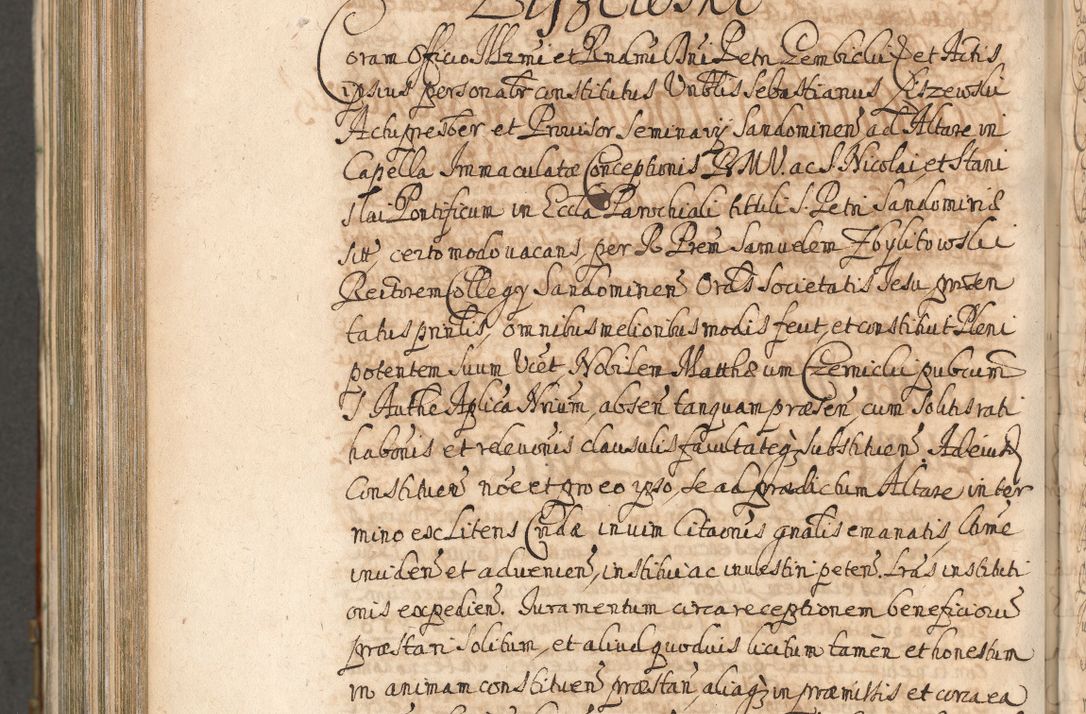 Liszewski
Coram Officio Illrmi et Rndmi Dni Petri Gembicki et Actis
ipsius personalr constitutus Vnblis Sebastianus Liszewski
Actupresber et Prouisor Seminarij Sandominen ad Altare in
Capella Immaculatæ Conceptionis B.M.V. ac S. Nicolai, et Stani
slai Pontificum in Eccla Parochiali tituli S. Petri Sandomiriæ
sitt, certo modo vacans, per R. Prem Samuelem Zbylitowski
Rectorem Collegij Sandominen Ordis Societatis Iesu præsen
tatus prntis, omnibus melioribus modis fecit, et constituit Pleni
potentem suum Vcet Nobilem Matthæum Czernicki publicum
S. Authe Aplica Nrium, absen tanquam præsen, cum solitis rati
habonis et releuonis clausulis, facultateq substituen. Ad eiusd
Constituen noe et pro eo ipso, se ad prædictum Altare in ter
mino ex Litens Cridæ in uim Citaonis gnalis emanatis, Come
inuiden et aduenien, institui ac inuestiri peten. Lras instituti
onis expedien. Iuramentum circa receptionem beneficioru
præstari solitum, et aliud quoduis licitum tamen et honestum
in animam constituen præstan, aliaq in præmissis et circa ea